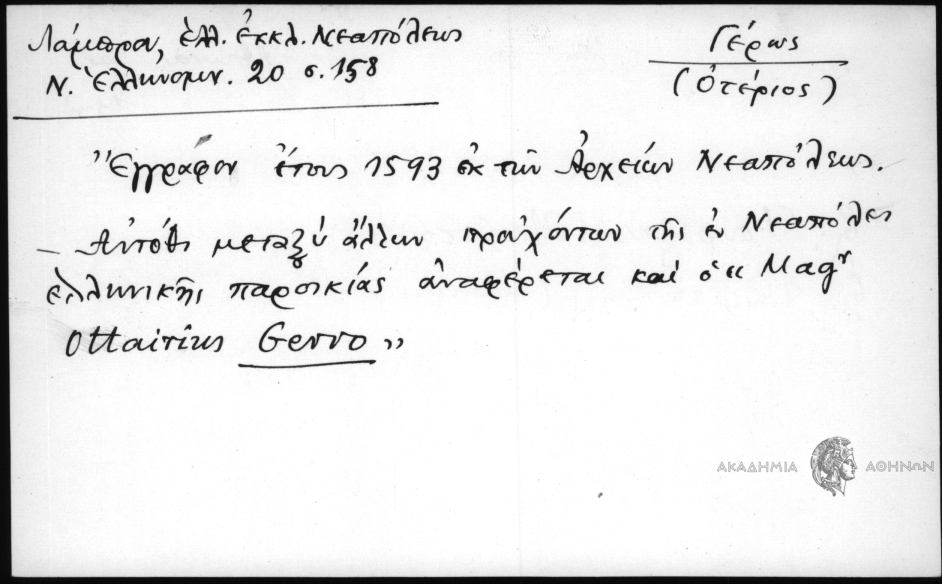 Λάμπρου, ἑλλ. ἐκκλ. Νεαπόλεως
Ν. Ἑλληνομν. 20 σ. 158
Γέρως
(Ὀτέριος)
Ἔγγραφον ἔτους 1593 ἐκ τῶν Ἀρχείων Νεαπόλεως.
– Αὐτόθι μεταξὺ ἄλλων προὐχόντων τῆς ἐν Νεαπόλει
ἑλληνικῆς παροικίας ἀναφέρεται καὶ ὁ « Magʳ
Gerro »
ΑΚΑΔΗΜΙΑ ΑΘΗΝΩΝ